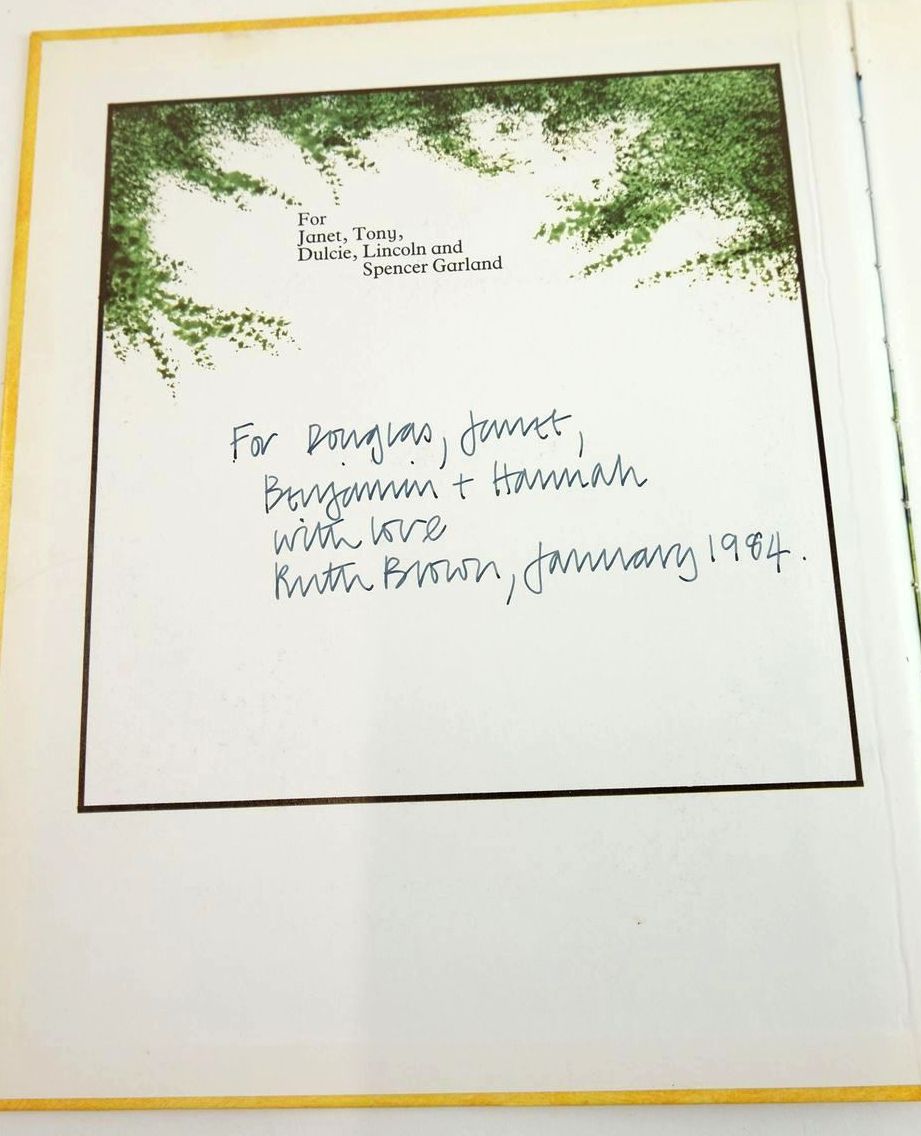 For
Janet, Tony,
Dulcie, Lincoln and
Spencer Garland
For Douglas, Janet,
Benjamin + Hannah
with love
Ruth Brown, January 1984.